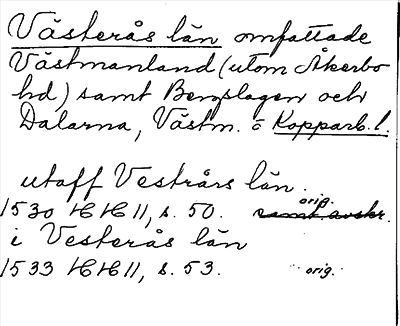 Västerås län omfattade
Västmanland (utom Åkerbo
hd) samt Bergslagen och
Dalarna, Västm. o Kopparb. l.
utaff Vestrårs län.
orig.
1530 HH 11, s. 50. samt avskr.
i Vesterås län
1533 HH 11, s. 53. orig.